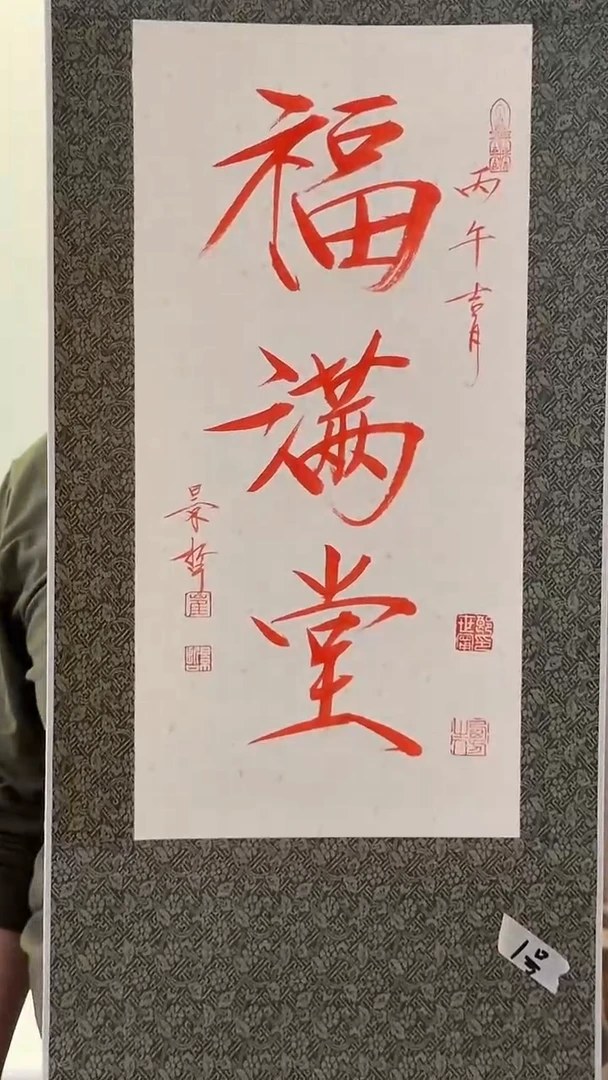 福满堂
丙午吉月
景哲
1号